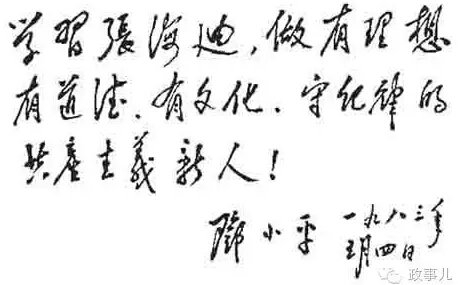 学習張海迪,做有理想
有道德、有文化、守纪律的
共產主義新人!
鄧小平 一九八三年
五月四日
政事儿